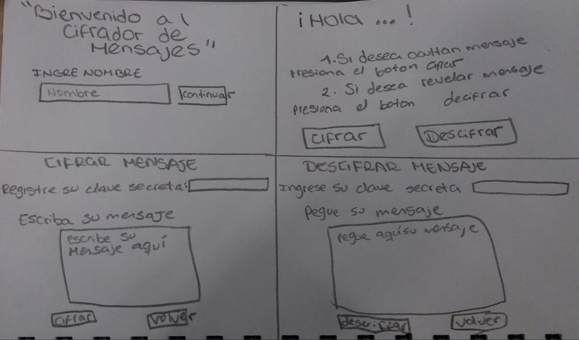 "Bienvenido al
Cifrador de
Mensajes"
INGRE NOMBRE
Nombre
Continuar
¡Hola ...!
1. Si desea ocultan mensaje
presiona el boton cifrar
2. Si desea revelar mensaje
presiona el boton decifrar
Cifrar
Descifrar
CIFRAR MENSAJE
Registre su clave secreta:
Escriba su mensaje
Escribe su
Mensaje aquí
cifrar
volver
DESCIFRAR MENSAJE
Ingrese su clave secreta
Pegue su mensaje
Pegue aquí su mensaje
descifrar
volver